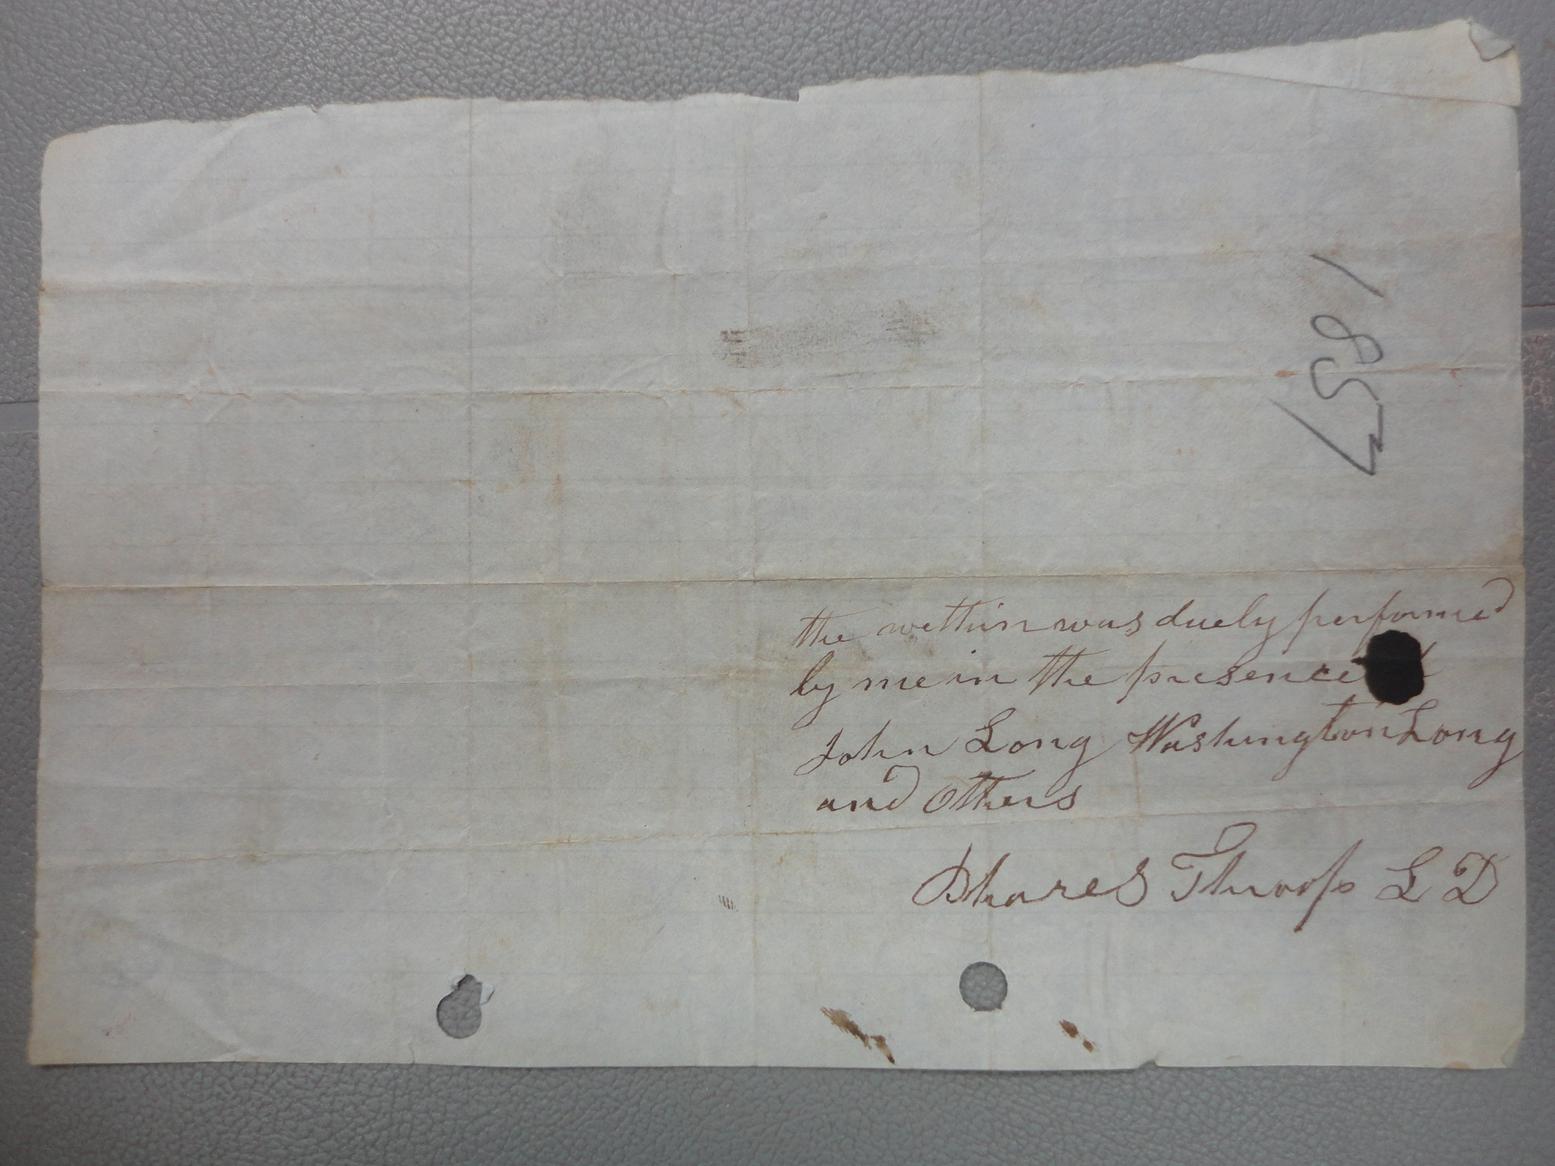 1857
the within was duely performed
by me in the presence
John Long Washington Long
and others
Phares Throop L D